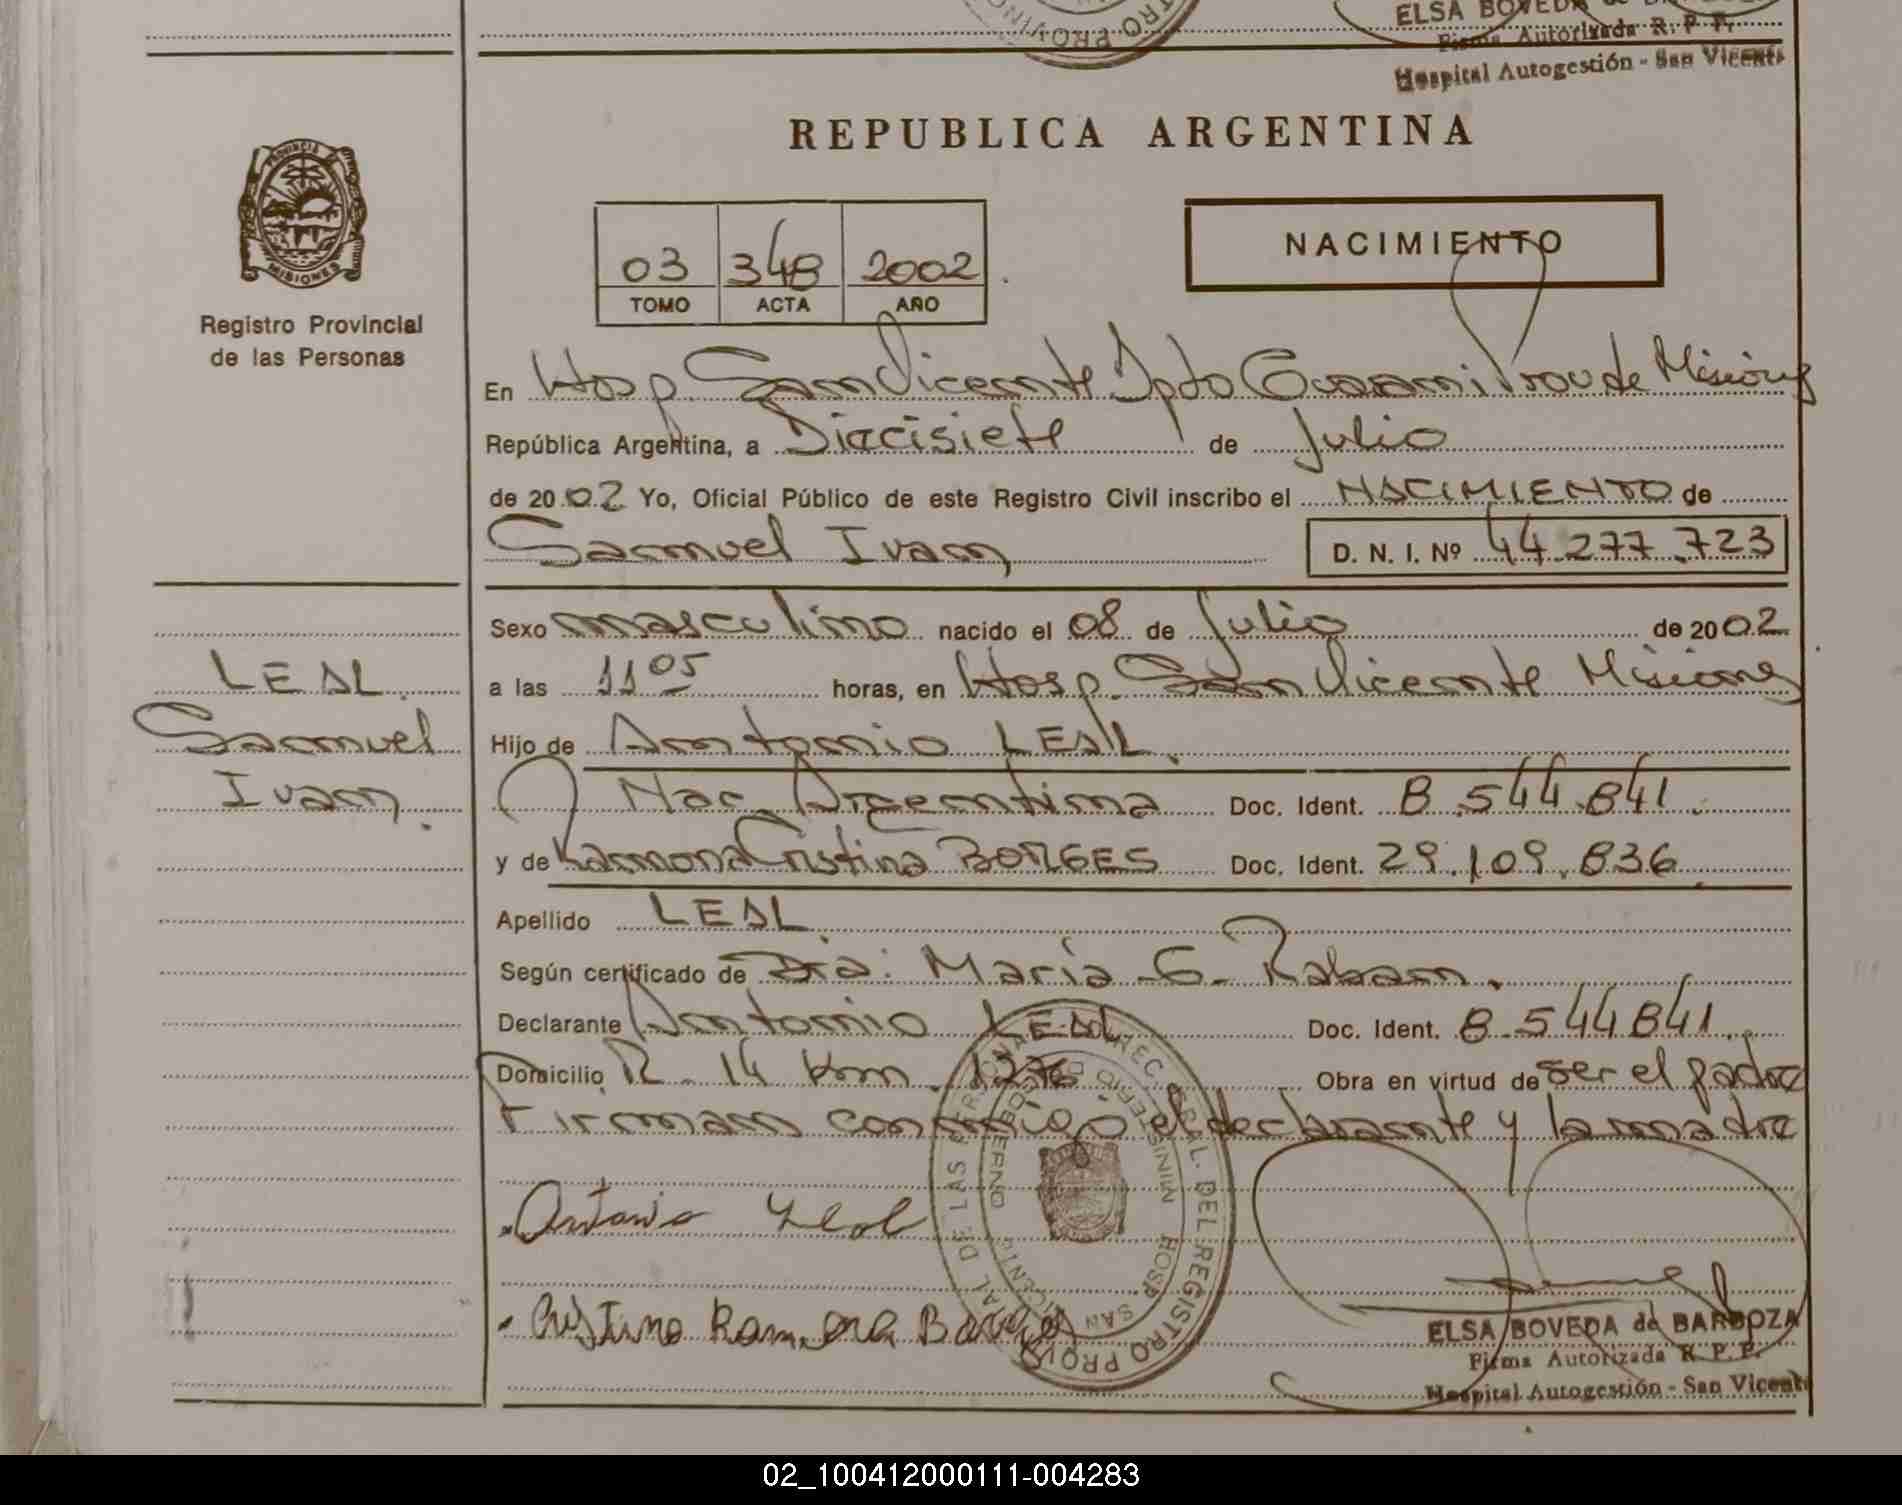 ELSA BOVEDA de
Firma Autorizada R. P. P.
Hospital Autogestión - San Vicente
REPUBLICA ARGENTINA
PROVINCIA DE
MISIONES
Registro Provincial
de las Personas
03 348 2002
TOMO ACTA AÑO
NACIMIENTO
En Hosp. San Vicente Dpto Guarani Prov de Misiones
República Argentina, a Diecisiete de Julio
de 2002 Yo, Oficial Público de este Registro Civil inscribo el NACIMIENTO de
Samuel Ivan D. N. I. Nº 44 277.723
Sexo masculino nacido el 08 de Julio de 2002
LEAL
a las 11 05 horas, en Hosp. San Vicente Misiones
Samuel
Hijo de Antonio LEAL.
Ivan.
Nac. Argentina Doc. Ident. 8.544.841.
y de Ramona Cristina BORGES Doc. Ident. 29.109.836.
Apellido LEAL
Según certificado de Dra: María G. Rabam.
Declarante Antonio LEAL Doc. Ident. 8.544841.
Domicilio R. 14 Km. 1276 Obra en virtud de ser el padre
Firman conmigo el declarante y la madre
Antonio Leal
Cristina Ramona Borges
DIREC. GRAL. DEL REGISTRO PROVINCIAL DE LAS PERSONAS
MINISTERIO DE GOBIERNO
HOSP SAN VICENTE
ELSA BOVEDA de BARBOZA
Firma Autorizada R. P. P.
Hospital Autogestión - San Vicente
02_100412000111-004283